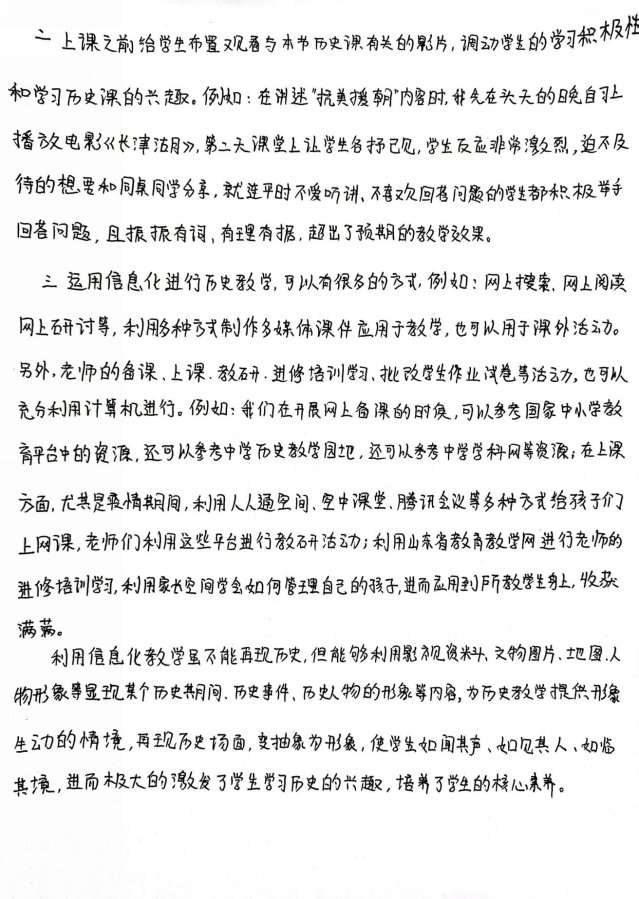 二 上课之前给学生布置观看与本节历史课有关的影片，调动学生的学习积极性
和学习历史课的兴趣。例如：在讲述“抗美援朝”内容时，我先在头天的晚自习上
播放电影《长津湖》，第二天课堂上让学生各抒己见，学生反应非常激烈，迫不及
待的想要和同桌同学分享，就连平时不爱听讲、不喜欢回答问题的学生都积极举手
回答问题，且振振有词、有理有据，超出了预期的教学效果。
三 运用信息化进行历史教学，可以有很多的方式，例如：网上搜索、网上阅读
网上研讨等，利用多种方式制作多媒体课件应用于教学，也可以用于课外活动。
另外，老师的备课、上课、教研、进修培训学习、批改学生作业试卷等活动，也可以
充分利用计算机进行。例如：我们在开展网上备课的时候，可以参考国家中小学教
育平台中的资源，还可以参考中学历史教学园地，还可以参考中学学科网等资源；在上课
方面，尤其是疫情期间，利用人人通空间、空中课堂、腾讯会议等多种方式给孩子们
上网课，老师们利用这些平台进行教研活动；利用山东省教育教学网进行老师的
进修培训学习，利用家长空间学会如何管理自己的孩子，进而应用到所教学生身上，收获
满满。
利用信息化教学虽不能再现历史，但能够利用影视资料、文物图片、地图、人
物形象等显现某个历史期间、历史事件、历史人物的形象等内容，为历史教学提供形象
生动的情境，再现历史场面，变抽象为形象，使学生如闻其声、如见其人、如临
其境，进而极大的激发了学生学习历史的兴趣，培养了学生的核心素养。